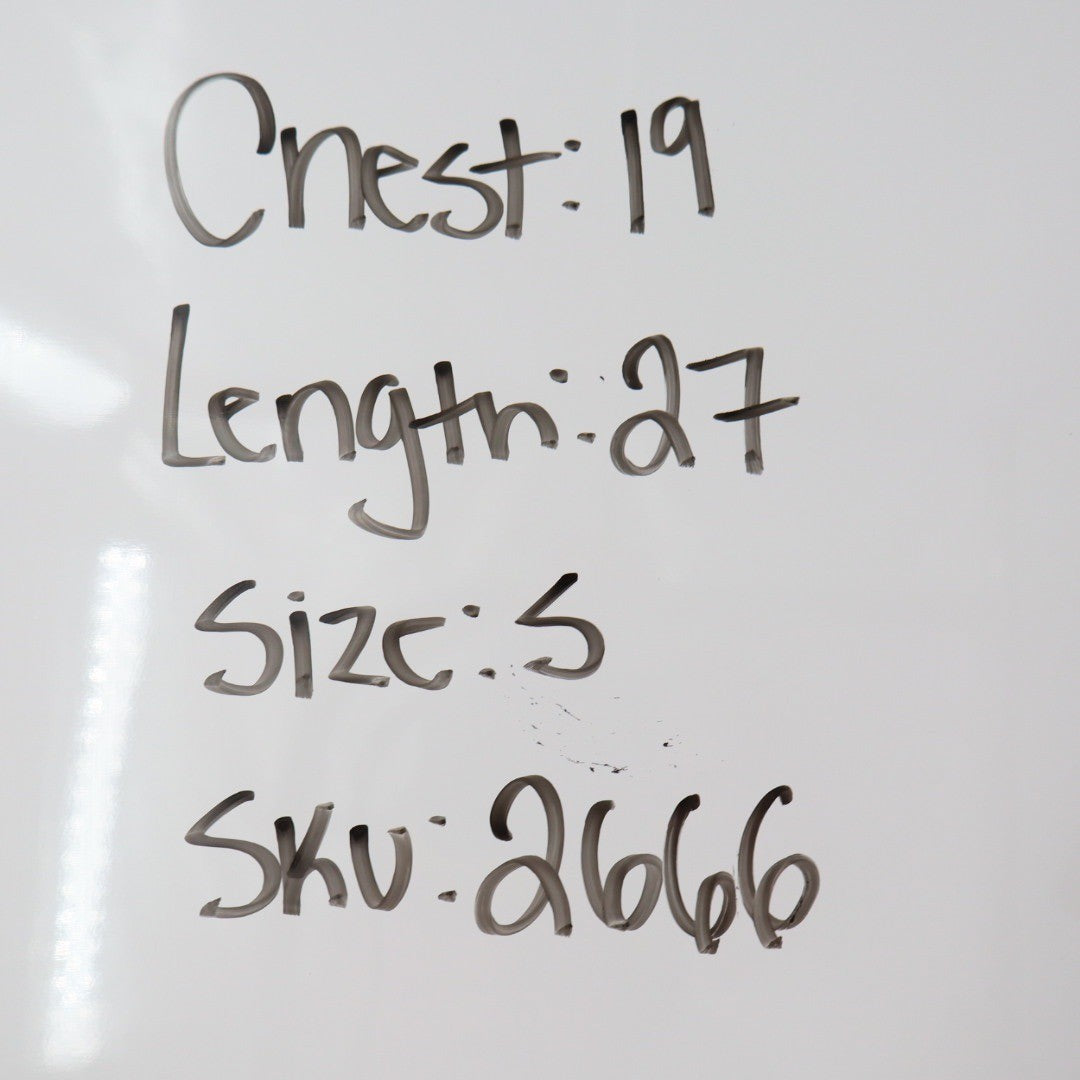 Chest: 19
Length: 27
Size: S
SKU: 2666